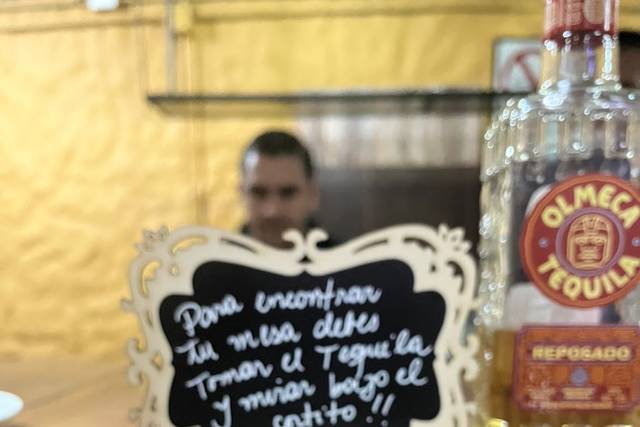 Para encontrar
tu mesa debes
Tomar el Tequila
y mirar bajo el
sortito !!
OLMECA
TEQUILA
REPOSADO